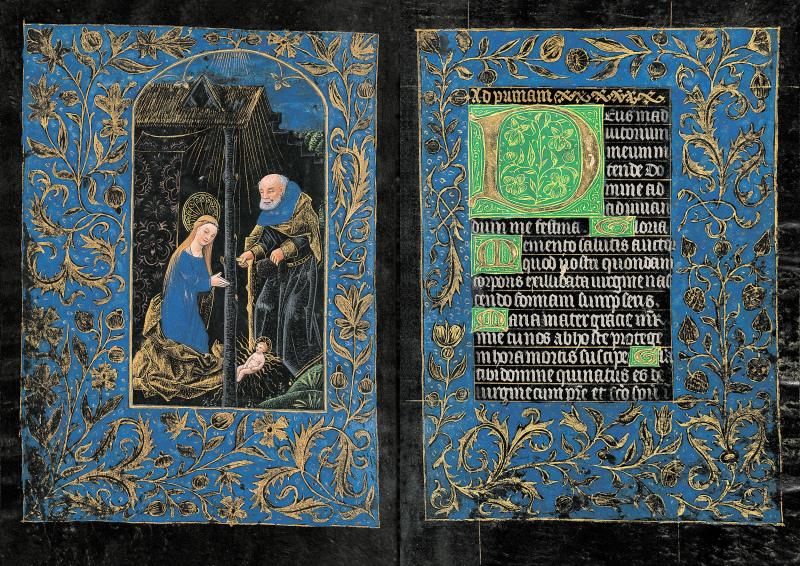 Ad primam
Deus in ad
iutorium
meum in
tende Do
mine ad
adiuuan
dum me festina. Gloria
Memento salutis auctor
quod nostri quondam
corporis ex illibata uirgine nas
cendo formam sumpseris.
Maria mater gracie mr̄
mie tu nos ab hoste protege
in hora mortis suscipe Gl̄a
tibi domine qui natus es de
uirgine cum pr̄e et sc̄o spū